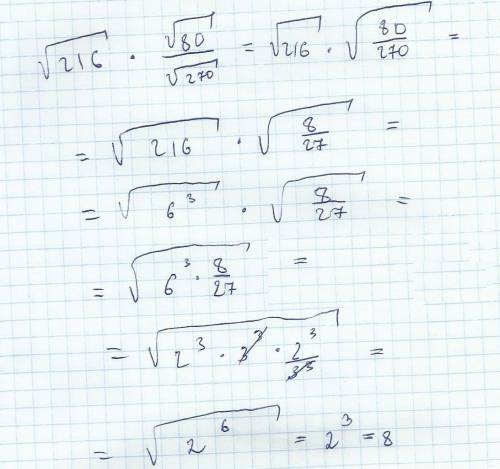 √216 · √80/√270 = √216 · √(80/270) =
= √216 · √(8/27) =
= √(6³) · √(8/27) =
= √(6³ · 8/27) =
= √(2³ · 3³ · 2³/3³) =
= √(2⁶) = 2³ = 8